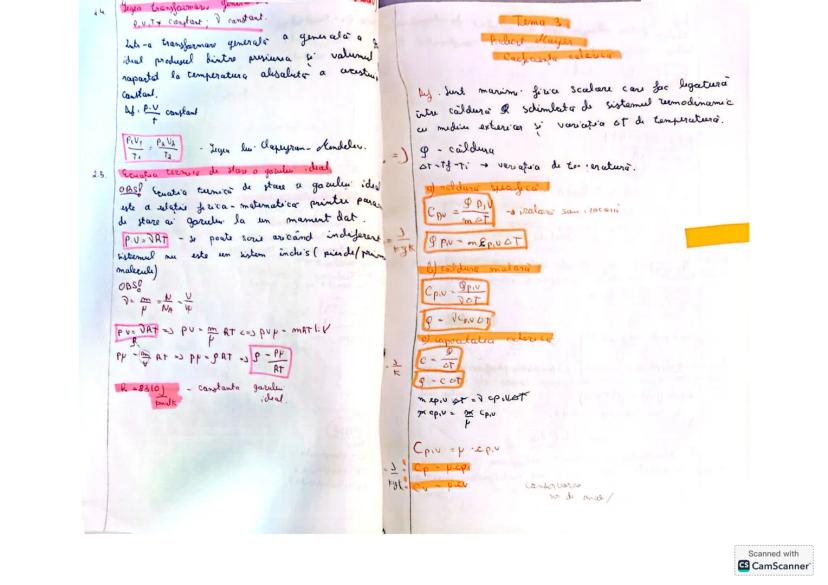 2.4. Legea transformării generale
p,V,T ≠ constant; ν constant.
Într-o transformare generală a
ideal produsul dintre presiunea și volumul
raportat la temperatura absolută a acestui
constant.
p·V constant
P₁V₁/T₁ = P₂V₂/T₂ - Legea lui Clapeyron-Mendeleev.
2.5. Ecuația termică de stare a gazului ideal
OBS! Ecuația termică de stare a gazului ide
este o relație fizico-matematică printre para
de stare ai gazului la un moment dat.
p·V = νRT - se poate scrie oricând indiferent
sistemul nu este un sistem închis (pierde/prim
molecule)
OBS!
ν = m/μ = N/NA = V/Vμ
pV = νRT => pV = m/μ RT <=> pVμ = mRT |:V
pμ = m/V RT => pμ = ρRT => ρ = pμ/RT
R = 8310 J/kmolK - constanta gazului
ideal.
Tema 3
Robert Mayer
Coeficienți calorici
Def. Sunt mărimi fizice scalare care fac legătură
între căldură Q schimbată de sistemul termodinamic
cu mediu exterior și variația ΔT de temperatură.
=> Q - căldura
ΔT = Tf - Ti → variația de temperatură.
a) căldura specifică
Cp,v = Qp,v/mΔT → izobară sau izocoră
J/kgK Qp,v = m cp,v ΔT
b) căldura molară
Cp,v = Qp,v/νΔT
Q = νCp,vΔT
c) capacitatea calorică
J/K C = Q/ΔT
Q = CΔT
m cp,v ΔT = ν Cp,v ΔT
m cp,v = m/μ Cp,v
Cp,v = μ · cp,v
Cp = μ cp
Cv = μ cv
conservarea
Scanned with
CS CamScanner